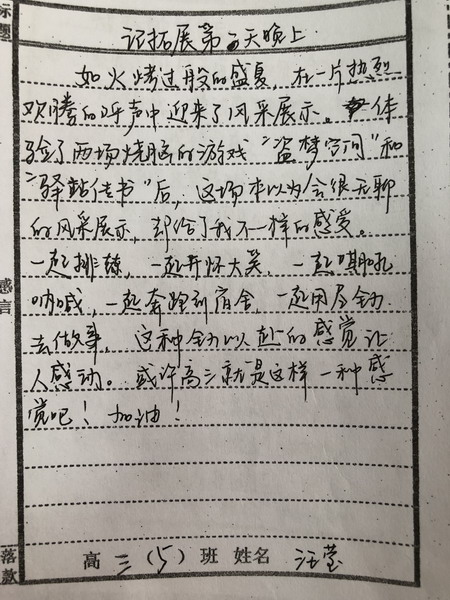 标题
记拓展第二天晚上
如火烤过般的盛夏，在一片热烈
欢腾的呼声中迎来了风采展示。体
验了两场烧脑的游戏“盗梦空间”和
“驿站传书”后，这场本以为会很无聊
的风采展示，却给了我不一样的感受。
一起排练，一起开怀大笑，一起嘶吼
呐喊，一起奔跑到宿舍，一起用尽全力
去做事，这种全力以赴的感觉让
人感动。或许高三就是这样一种感
觉吧！加油！
感言
落款
高三（5）班 姓名 汪莹